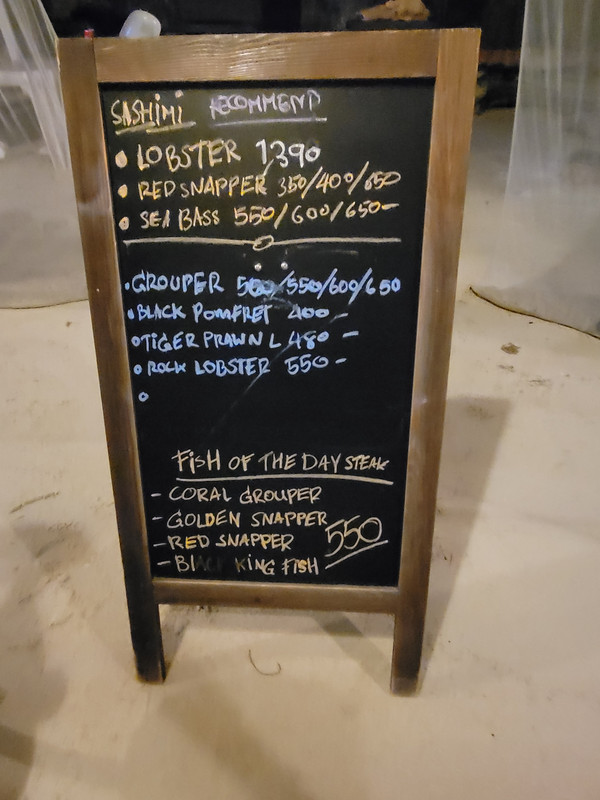 SASHIMI RECOMMEND
• LOBSTER 1390
• RED SNAPPER 350/400/650
• SEA BASS 550/600/650-
• GROUPER 500/550/600/650
• BLACK POMFRET 400 -
• TIGER PRAWN L 480 -
• ROCK LOBSTER 550 -
FISH OF THE DAY STEAK
- CORAL GROUPER
- GOLDEN SNAPPER
- RED SNAPPER 550
- BLACK KING FISH